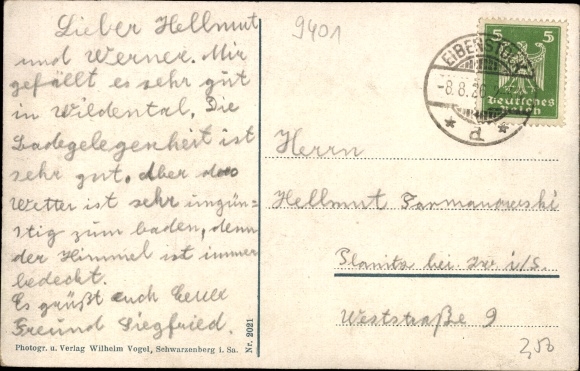 Lieber Hellmut
und Werner. Mir
gefällt es sehr gut
in Wildental. Die
Badegelegenheit ist
sehr gut. Aber das
Wetter ist sehr ungün=
stig zum baden, denn
der Himmel ist immer
bedeckt.
Es grüßt euch Euer
Freund Siegfried.
Photogr. u. Verlag Wilhelm Vogel, Schwarzenberg i. Sa.
Nr. 2021
9401
5 5
Deutsches
Reich
EIBENSTOCK
-8.8.26
* d *
Herrn
Hellmut
Planitz bei Zw i/S.
Weststraße 9
2,50